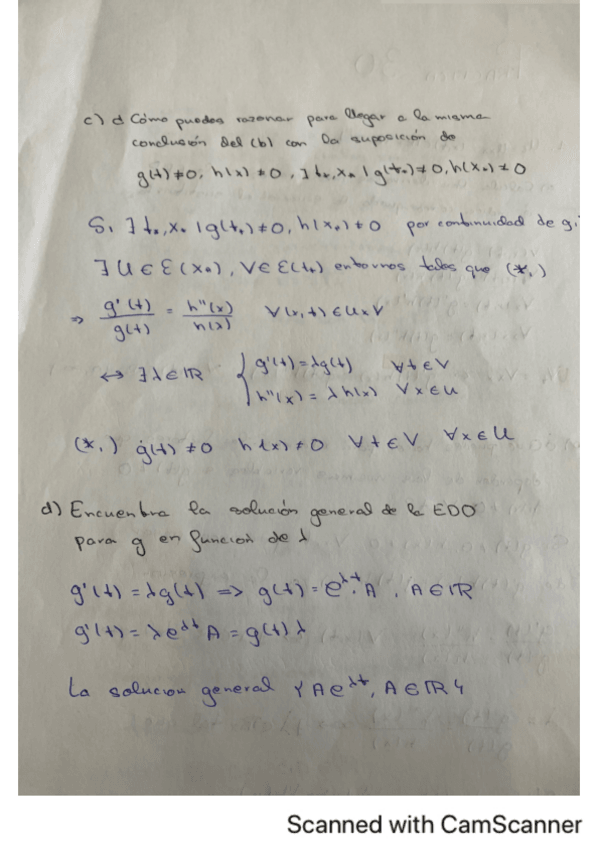 c) ¿ Cómo puedes razonar para llegar a la misma
conclusión del (b) con la suposición de
g(t) ≠ 0, h(x) ≠ 0, ∃ t₀, x₀ | g(t₀) ≠ 0, h(x₀) ≠ 0
Si ∃ t₀, x₀ | g(t₀) ≠ 0, h(x₀) ≠ 0 por continuidad de g,
∃ U ∈ Ɛ(x₀), V ∈ Ɛ(t₀) entornos tales que (*₁)
⇒ g'(t)/g(t) = h''(x)/h(x) ∀(x,t) ∈ U×V
↔ ∃ λ ∈ ℝ { g'(t) = λg(t) ∀t ∈ V
h''(x) = λ h(x) ∀x ∈ U
(*₁) g(t) ≠ 0 h(x) ≠ 0 ∀t ∈ V ∀x ∈ U
d) Encuentra la solución general de la EDO
para g en función de λ
g'(t) = λg(t) => g(t) = e^λt · A , A ∈ ℝ
g'(t) = λe^λt A = g(t) λ
La solucion general { Ae^λt, A ∈ ℝ }
Scanned with CamScanner